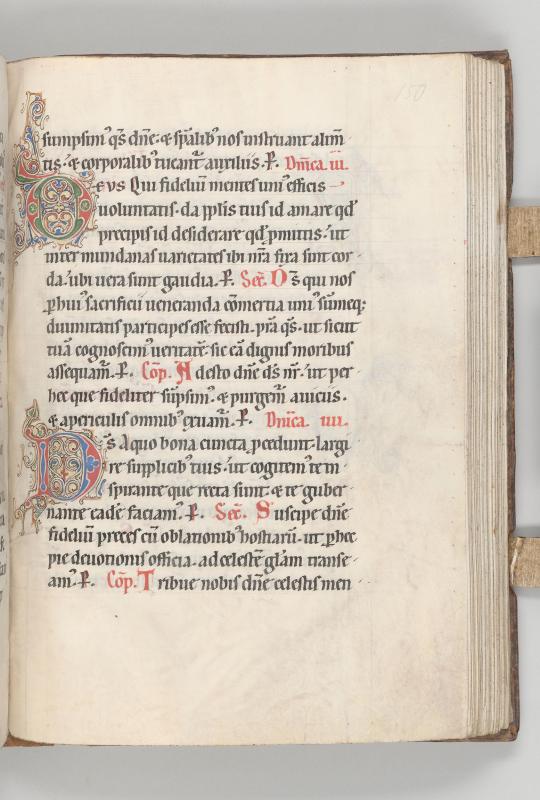 150
sumpsim⁹ q̄s dn̄e. & sp̄alib⁹ nos instruant alim̄-
tis. & corporalib⁹ tueant᷑ auxiliis. P. Dn̄ica .iii.
Deus Qui fideliū mentes uni⁹ efficis
uoluntatis. da pp̄lis tuis id amare qđ
precipis id desiderare qđ ꝓmittis. ut
inter mundanas uarietates ibi nr̄a fixa sint cor-
da. ubi uera sunt gaudia. P. Sec̄. Ds̄ qui nos
ꝑ hui⁹ sacrificii ueneranda cōmertia uni⁹ sūmeq;
diuinitatis participes esse fecisti. pr̄a q̄s. ut sicut
tuā cognoscim⁹ ueritatē. sic eā dignis moribus
assequam̄. P. Cōp. Adesto dn̄e ds̄ nr̄. ut per
hec que fideliter sūpsim⁹. & purgem̄ a uiciis.
& a periculis omnib⁹ exuam̄. P. Dn̄ica .iiii.
Ds̄ A quo bona cuncta ꝓcedunt. largi-
re supplicib⁹ tuis. ut cogitem⁹ te in-
spirante que recta sunt. & te guber-
nante eadē faciam⁹. P. Sec̄. Suscipe dn̄e
fideliū preces cū oblationib⁹ hostiarū. ut ꝑ hec
pie deuotionis officia. ad celestē gl̄am transe-
am⁹. P. Cōp. Tribue nobis dn̄e celestis men